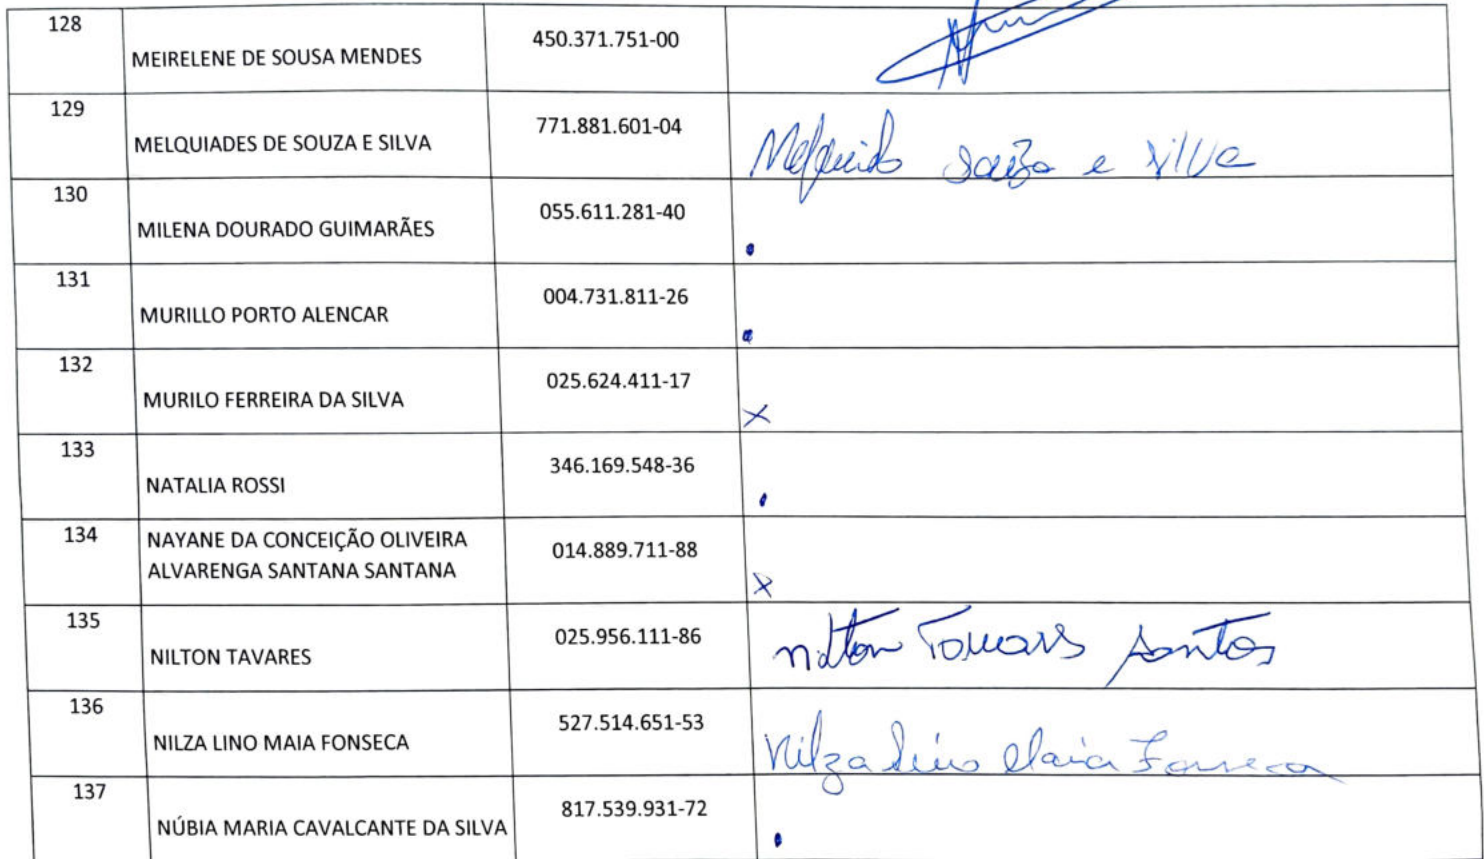 128
MEIRELENE DE SOUSA MENDES
450.371.751-00
129
MELQUIADES DE SOUZA E SILVA
771.881.601-04
Souza e Silva
130
MILENA DOURADO GUIMARÃES
055.611.281-40
131
MURILLO PORTO ALENCAR
004.731.811-26
132
MURILO FERREIRA DA SILVA
025.624.411-17
X
133
NATALIA ROSSI
346.169.548-36
134
NAYANE DA CONCEIÇÃO OLIVEIRA
ALVARENGA SANTANA SANTANA
014.889.711-88
X
135
NILTON TAVARES
025.956.111-86
Nilton Tavares Santos
136
NILZA LINO MAIA FONSECA
527.514.651-53
Nilza Lino Maia Fonseca
137
NÚBIA MARIA CAVALCANTE DA SILVA
817.539.931-72